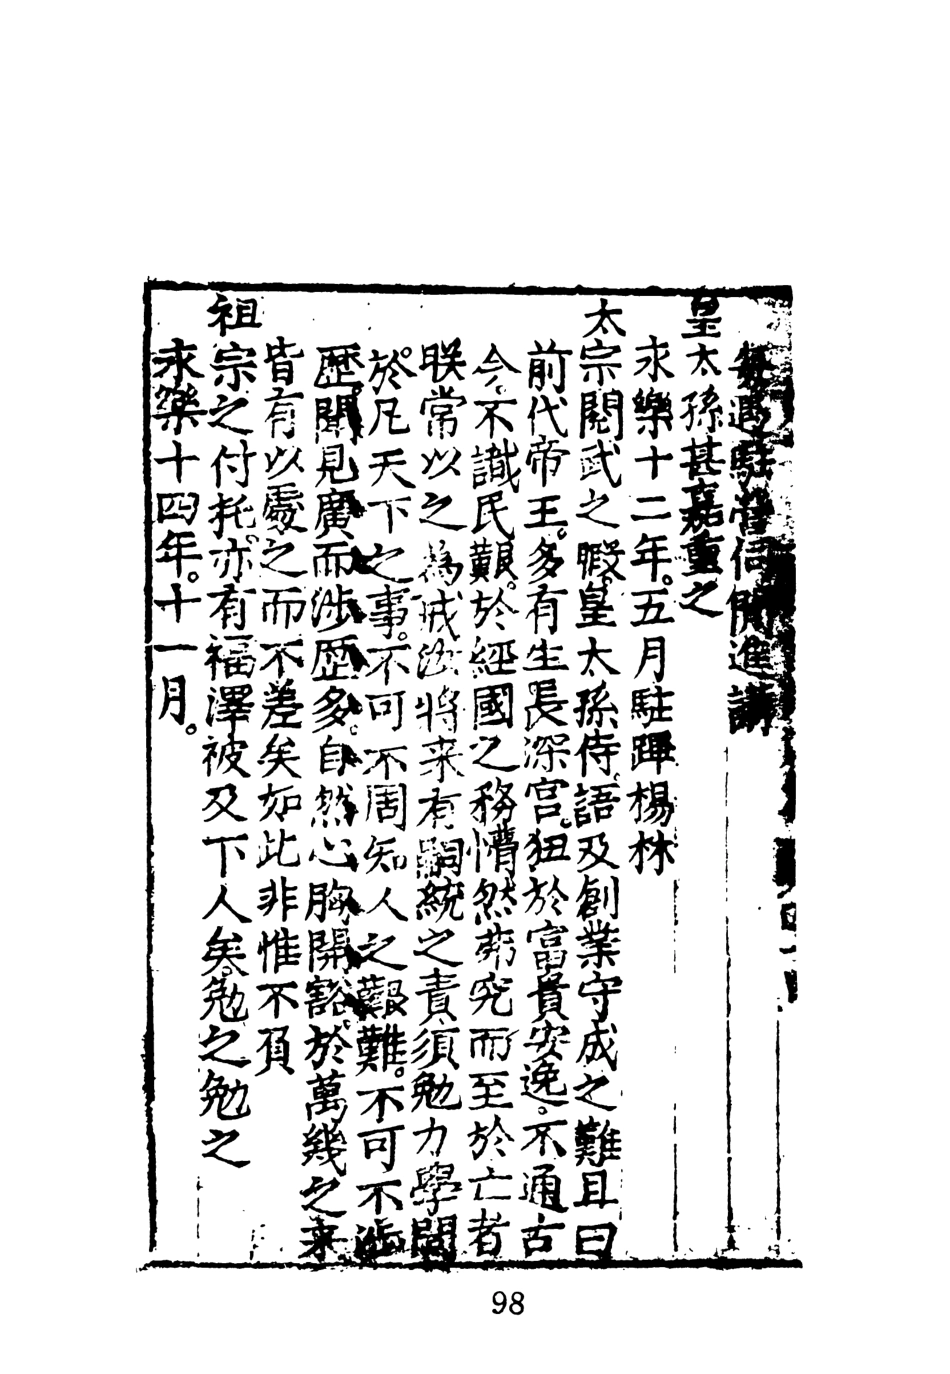 每遇駐營伺閒進講
皇太孫甚嘉重之
永樂十二年。五月駐蹕楊林
太宗閱武之暇。皇太孫侍。語及創業守成之難且曰
前代帝王。多有生長深宮。狃於富貴安逸。不通古
今。不識民艱。於經國之務懵然弗究而至於亡者
朕常以之為戒汝將来有嗣統之責須勉力學問
於凡天下之事。不可不周知人之艱難。不可不涉
歷。聞見廣而涉歷多。自然心胸開豁。於萬幾之来
皆有以處之而不差矣如此非惟不負
祖宗之付托。亦有福澤被及下人矣。勉之勉之
永樂十四年。十一月。
98